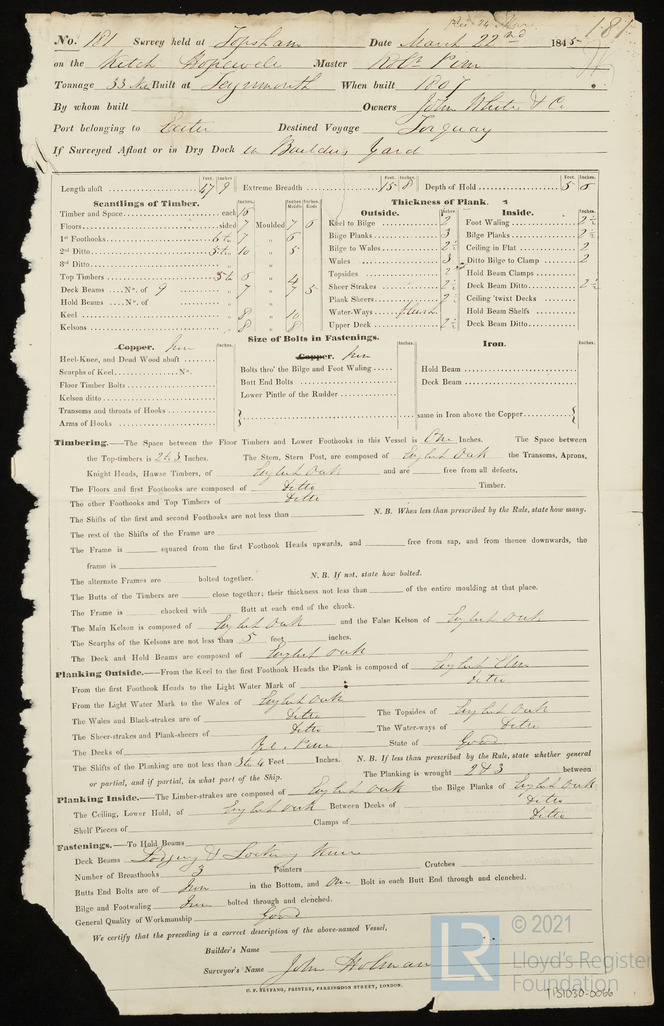 181
No. 181 Survey held at Topsham Date March 22nd 1845
on the Ketch Hopewell Master Robt Pim
Tonnage 33 Built at Teignmouth When built 1807
By whom built Owners John White & Co.
Port belonging to Exeter Destined Voyage Torquay
If Surveyed Afloat or in Dry Dock in Builders Yard
Feet. Inches. Feet. Inches. Feet. Inches.
Length aloft 47 9 Extreme Breadth 15 8 Depth of Hold 5 8
Scantlings of Timber. Thickness of Plank.
Outside. Inside.
Timber and Space each 16
Floors sided 7 Moulded 7 6
1st Foothooks 6 to 7 " 6
2nd Ditto 5 to 10 " 5
3rd Ditto
Top Timbers 5 to 6 " 4
Deck Beams No. of 9 " 7 " 7 5
Hold Beams No. of " "
Keel " 8 " 10
Kelsons " 8 " 8
Keel to Bilge 2
Bilge Planks 3
Bilge to Wales 2½
Wales 3
Topsides 2
Sheer Strakes 2½
Plank Sheers 2½
Water-Ways flush
Upper Deck 2½
Foot Waling 2½
Bilge Planks 2½
Ceiling in Flat 2
Ditto Bilge to Clamp 2
Hold Beam Clamps
Deck Beam Ditto 2½
Ceiling 'twixt Decks
Hold Beam Shelfs
Deck Beam Ditto
Size of Bolts in Fastenings.
Copper. Iron Copper. Iron Iron.
Heel-Knee, and Dead Wood abaft
Scarphs of Keel No.
Floor Timber Bolts
Kelson ditto
Transoms and throats of Hooks
Arms of Hooks
Bolts thro' the Bilge and Foot Waling
Butt End Bolts
Lower Pintle of the Rudder
Hold Beam
Deck Beam
same in Iron above the Copper
Timbering.—The Space between the Floor Timbers and Lower Foothooks in this Vessel is One Inches. The Space between
the Top-timbers is 2 & 3 Inches. The Stem, Stern Post, are composed of English Oak the Transoms, Aprons,
Knight Heads, Hawse Timbers, of English Oak and are free from all defects.
The Floors and first Foothooks are composed of Ditto Timber.
The other Foothooks and Top Timbers of Ditto
The Shifts of the first and second Foothooks are not less than N. B. When less than prescribed by the Rule, state how many.
The rest of the Shifts of the Frame are
The Frame is squared from the first Foothook Heads upwards, and free from sap, and from thence downwards, the
frame is
The alternate Frames are bolted together. N. B. If not, state how bolted.
The Butts of the Timbers are close together; their thickness not less than of the entire moulding at that place.
The Frame is chocked with Butt at each end of the chock.
The Main Kelson is composed of English Oak and the False Kelson of English Oak
The Scarphs of the Kelsons are not less than 5 feet inches.
The Deck and Hold Beams are composed of English Oak
Planking Outside.—From the Keel to the first Foothook Heads the Plank is composed of English Elm
From the first Foothook Heads to the Light Water Mark of Ditto
From the Light Water Mark to the Wales of English Oak
The Wales and Black-strakes are of Ditto The Topsides of English Oak
The Sheer-strakes and Plank-sheers of Ditto The Water-ways of Ditto
The Decks of Y.e. Pine State of Good
The Shifts of the Planking are not less than 3 to 4 Feet Inches. N. B. If less than prescribed by the Rule, state whether general
or partial, and if partial, in what part of the Ship. The Planking is wrought 2 & 3 between
Planking Inside.—The Limber-strakes are composed of English Oak the Bilge Planks of English Oak
The Ceiling, Lower Hold, of English Oak Between Decks of Ditto
Shelf Pieces of Clamps of Ditto
Fastenings.—To Hold Beams
Deck Beams Lodging & Locking Knees
Number of Breasthooks 3 Pointers Crutches
Butts End Bolts are of Iron in the Bottom, and One Bolt in each Butt End through and clenched.
Bilge and Footwaling Iron bolted through and clenched.
General Quality of Workmanship Good
We certify that the preceding is a correct description of the above-named Vessel,
Builder's Name
Surveyor's Name John Holman
C. F. SEYFANG, PRINTER, FARRINGDON STREET, LONDON.
LR
© 2021
Lloyd's Register
Foundation
TBS1030-0066